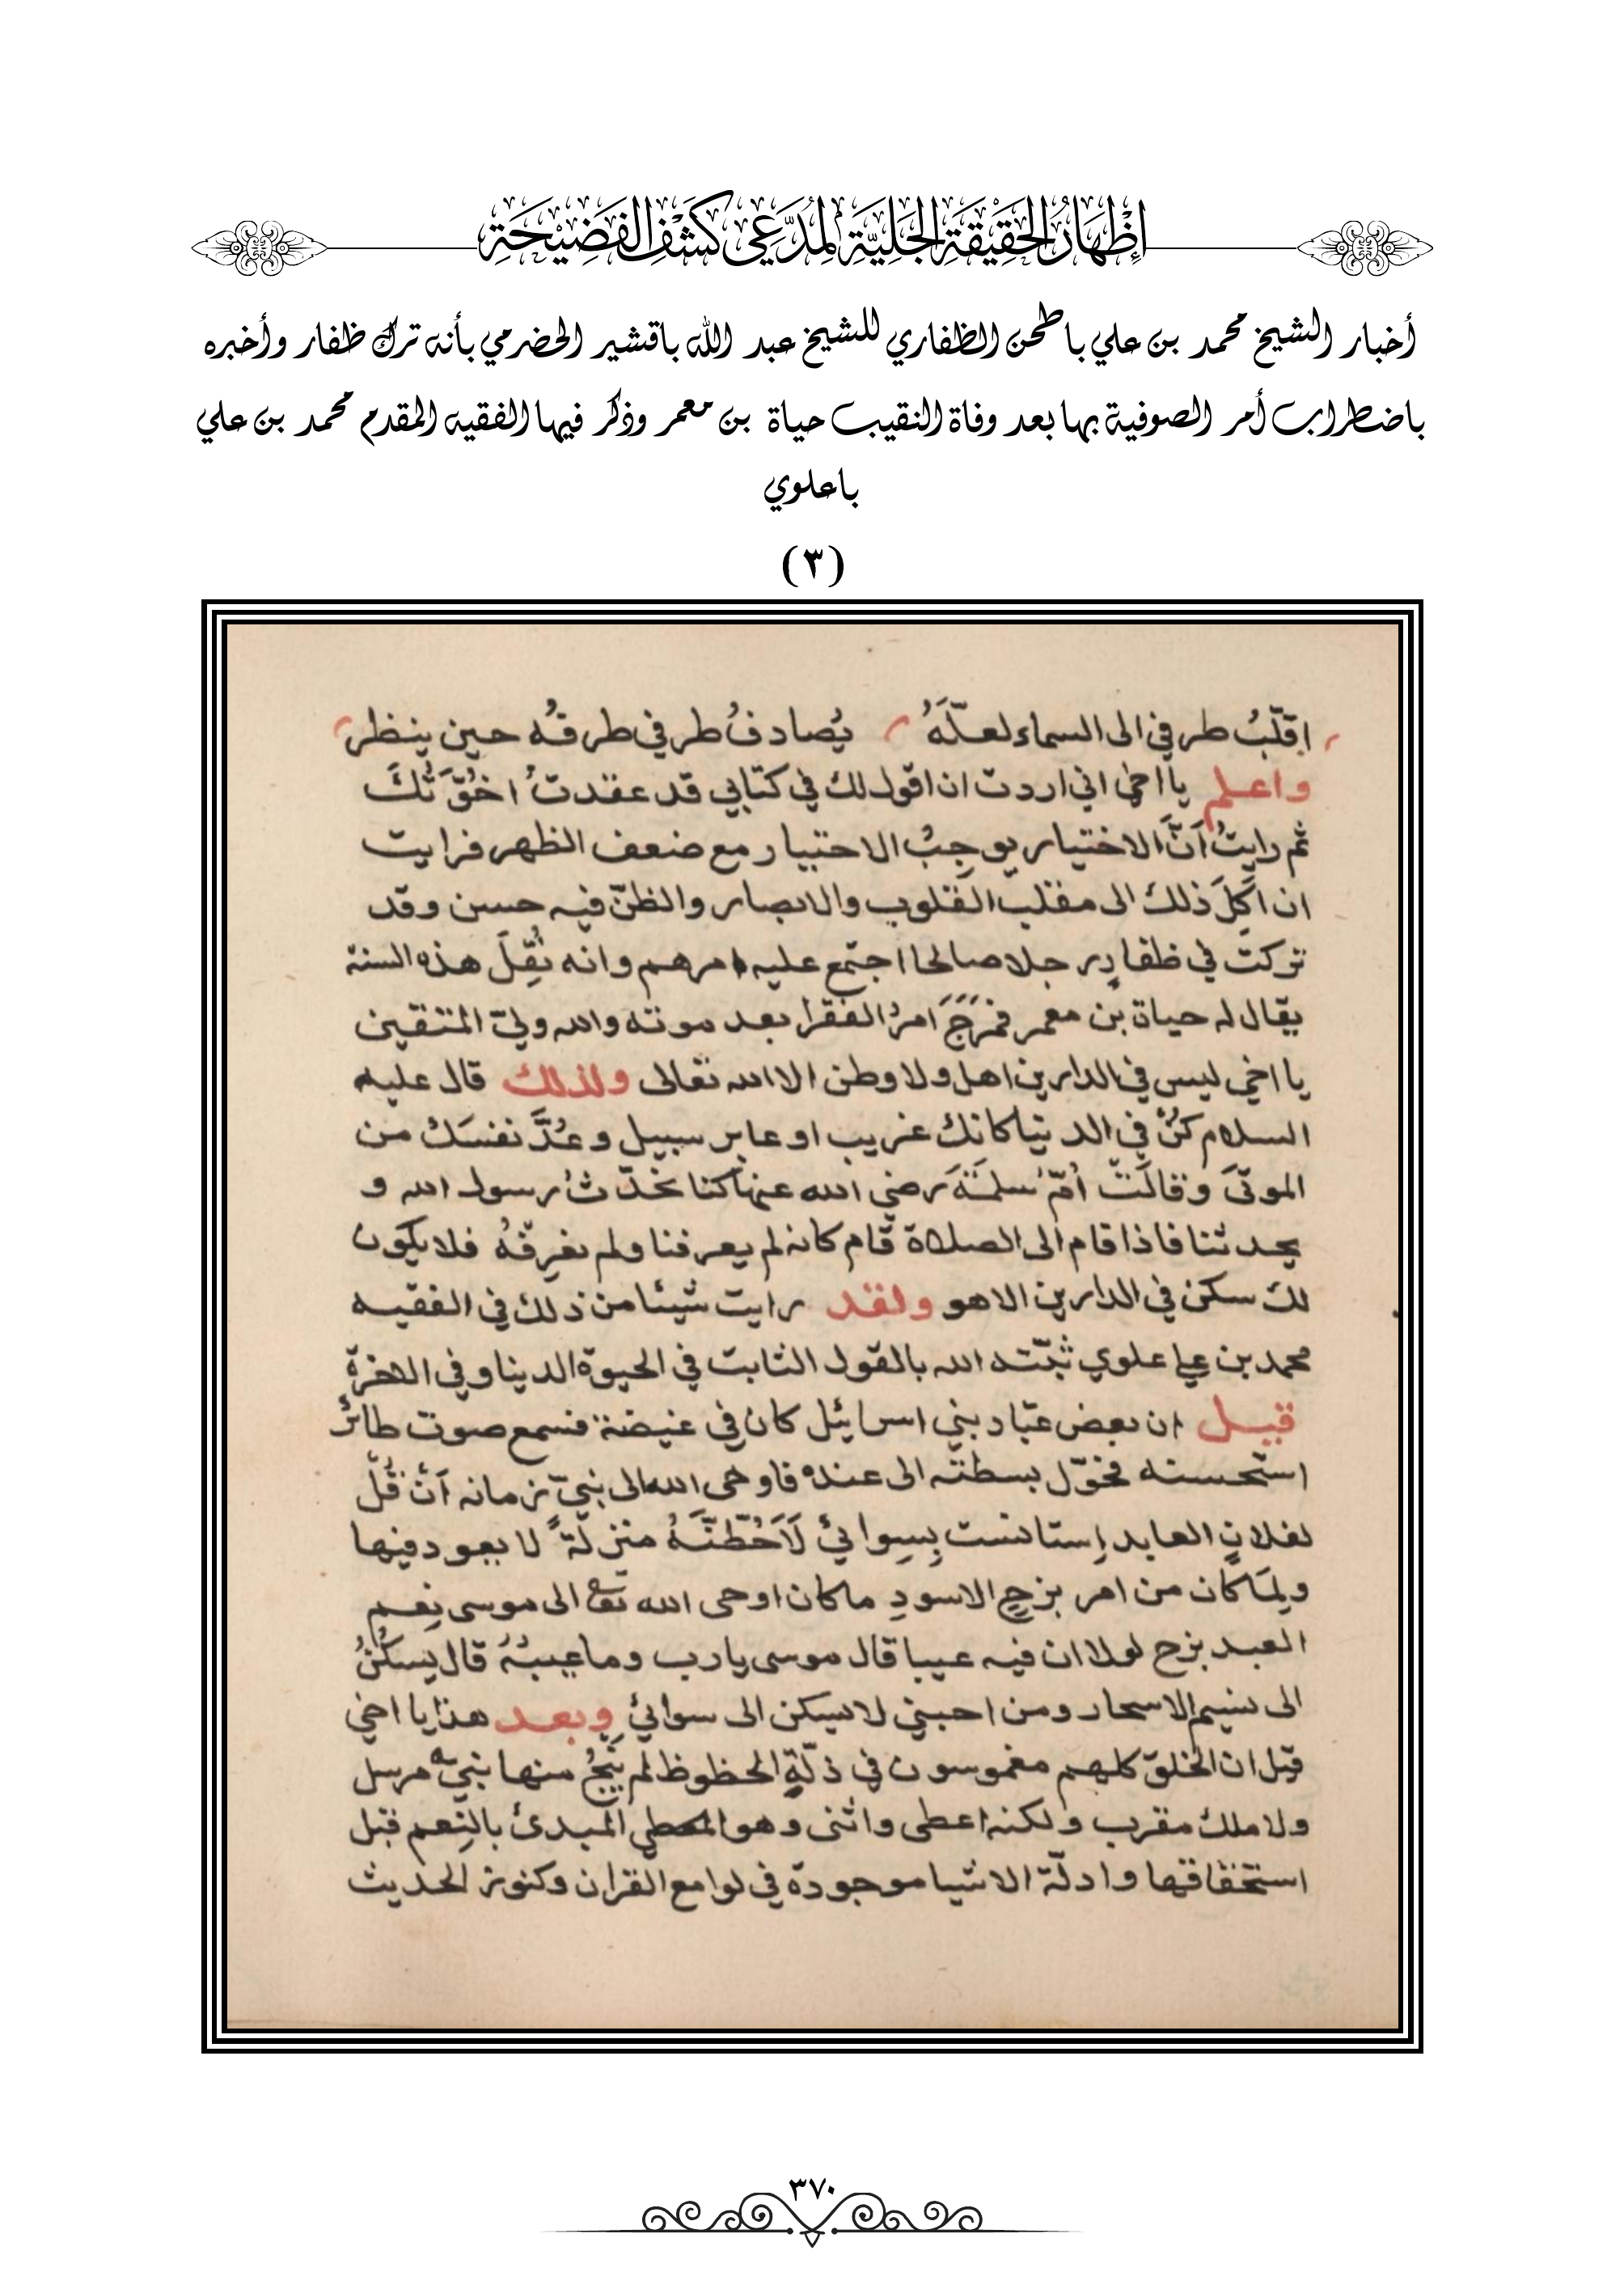 إِظْهَارُ الحَقِيْقَةِ الجَلِيَّةِ لِمُدَّعِي كَشْفِ الفَضِيْحَةِ
أخبار الشيخ محمد بن علي باطحن الظفاري للشيخ عبد الله باقشير الحضرمي بأنه ترك ظفار وأخبره
باضطراب أمر الصوفية بها بعد وفاة النقيب حياة بن معمر وذكر فيها الفقيه المقدم محمد بن علي
باعلوي
(٣)
اقلّبُ طرفي الى السماء لعلّهُ يُصادفُ طرفي طرفُه حين ينظر
واعلم يا اخي اني اردت ان اقول لك في كتابي قد عقدتُ اخُوَّتَكَ
ثم رايتُ أنَّ الاختيار يوجِبُ الاختبار مع ضعف الظهر فرايت
ان اكِلَ ذلك الى مقلب القلوب والابصار والظنّ فيه حسن وقد
تركت في ظفارِ رجلا صالحا اجتمع عليه امرهم وانه نُقِلَ هذه السنة
يقال له حياة بن معمر فمَرَجَ امرُ الفقرا بعد موته والله وليّ المتقين
يا اخي ليس في الدارين اهل ولا وطن الا الله تعالى ولذلك قال عليه
السلام كُنْ في الدنيا كانك غريب او عابر سبيل وعُدَّ نفسَكَ من
الموتَى وقالَتْ أمّ سلمَةَ رضي الله عنها كنا نحدّثُ رسول الله و
يحدثنا فاذا قام الى الصلاة قام كانه لم يعرفنا ولم نعرِفْهُ فلا يكون
لك سكن في الدارين الا هو ولقد رايت شيئا من ذلك في الفقيه
محمد بن علي علوي ثبّته الله بالقول الثابت في الحيوة الدينا وفي الاخرة
قيل ان بعض عبّاد بني اسرائيل كان في غيضة فسمع صوت طائرٌ
استحسنه فحوّل بسطته الى عنده فاوحى الله الى نبيّ زمانه أنْ قُلْ
لفلانٍ العابد اِستانست بِسِوائي لَاَحُطَّنَّهُ منزلةً لا يعود فيها
ولِمَا كان من امر بزحٍ الاسودِ ما كان اوحى الله تع الى موسى نِعم
العبد بزح لولا ان فيه عيبا قال موسى يا رب وما عيبُهُ قال يسكُنُ
الى نسيم الاسحار ومن احبني لا يسكن الى سوائي وبعد هذا يا اخي
قيل ان الخلق كلهم مغموسون في ذلّةِ الحظوظ لم ينجُ منها نبيّ مرسل
ولا ملك مقرب ولكنه اعطى واثنى وهو المعطي المبدئ بالنِعم قبل
استحقاقها وادلّة الاشيا موجودة في لوامع القران وكنوز الحديث
٣٧٠